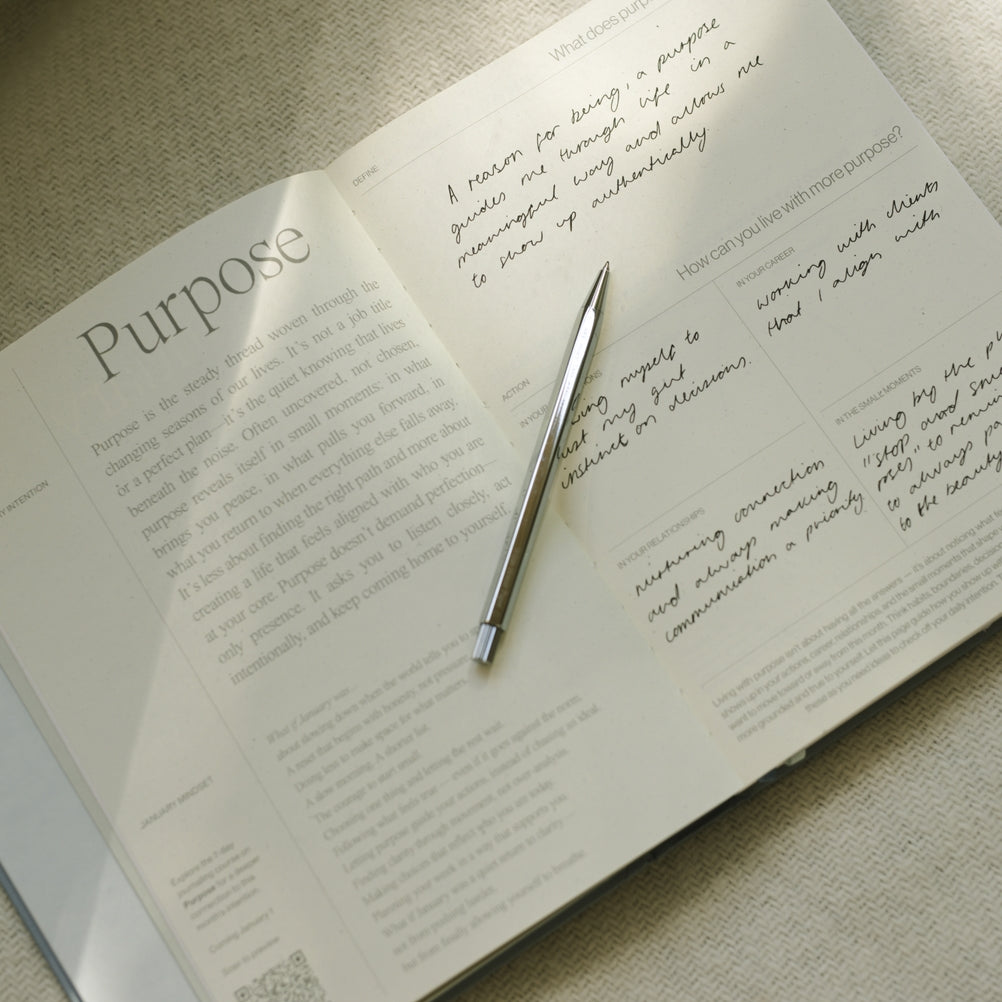 Purpose
Purpose is the steady thread woven through the
changing seasons of our lives. It's not a job title
or a perfect plan—it's the quiet knowing that lives
beneath the noise. Often uncovered, not chosen,
purpose reveals itself in small moments: in what
brings you peace, in what pulls you forward, in
what you return to when everything else falls away.
It's less about finding the right path and more about
creating a life that feels aligned with who you are
at your core. Purpose doesn't demand perfection—
only presence. It asks you to listen closely, act
intentionally, and keep coming home to yourself.
INTENTION
What if January was...
about slowing down when the world tells you to
A reset that begins with honesty, not pressure
Doing less to make space for what matters
A slow morning. A shorter list.
The courage to start small.
Choosing one thing and letting the rest wait.
Following what feels true — even if it goes against the norm.
Letting purpose guide your actions, instead of chasing an ideal.
Finding clarity through movement, not over analysis.
Making choices that reflect who you are today.
Planning your week in a way that supports you.
What if January was a quiet return to clarity—
not from pushing harder,
but from finally allowing yourself to breathe.
JANUARY MINDSET
Explore the 7-day
journaling course on
Purpose for a deeper
connection to this
month's intention.
Coming January 1
Scan to preview
What does purp
DEFINE
A reason for being, a purpose
guides me through life in a
meaningful way and allows me
to show up authentically.
How can you live with more purpose?
ACTION
IN YOUR
myself to
my gut
instinct on decisions.
IN YOUR CAREER
working with clients
that I align with
IN YOUR RELATIONSHIPS
nurturing connection
and always making
communication a priority
IN THE SMALL MOMENTS
Living by the
"stop and
roses" to
to always
to the beauty
Living with purpose isn't about having all the answers — it's about noticing what
shows up in your actions, career, relationships, and the small moments that shape
want to move toward or away from this month. Think habits, boundaries, decisions
more grounded and true to yourself. Let this page guide how you show up
these as you need ideas to check off your daily intention